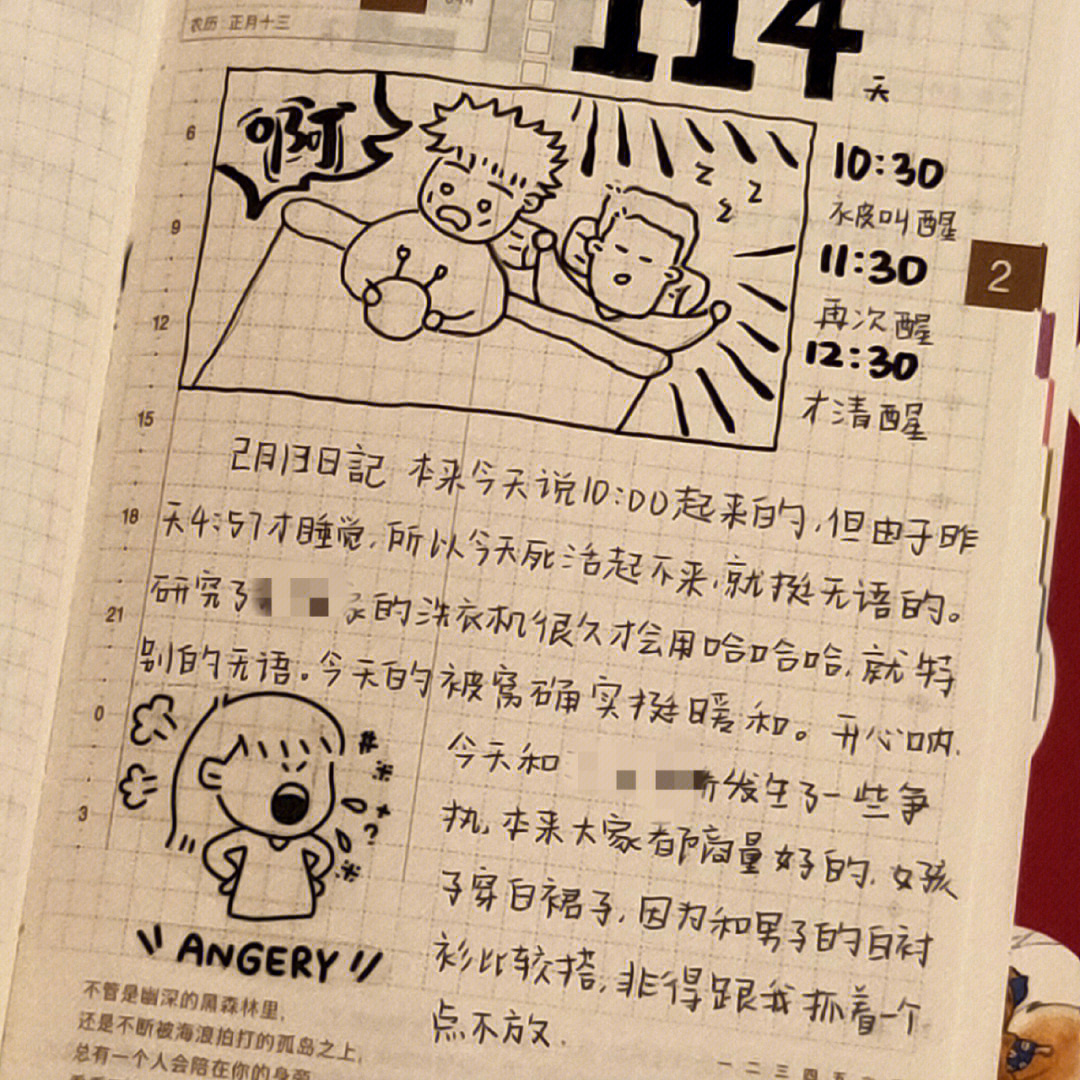 农历 正月十三
114
天
啊
z
z
z
6
9
12
15
18
21
0
3
10:30
被叫醒
11:30
再次醒
12:30
才清醒
2
2月13日記 本来今天说10:00起来的,但由于昨
天4:57才睡觉,所以今天死活起不来,就挺无语的。
研究了 家的洗衣机很久才会用哈哈哈,就特
别的无语。今天的被窝确实挺暖和。开心呐.
今天和 发生了一些争
执,本来大家都商量好的,女孩
子穿白裙子,因为和男子的白衬
衫比较搭,非得跟我抓着一个
点不放.
?
ANGERY
不管是幽深的黑森林里,
还是不断被海浪拍打的孤岛之上,
总有一个人会陪在你的身旁
一 二 三 四 五